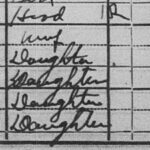 Head
Wife
Daughter
Daughter
Daughter
Daughter